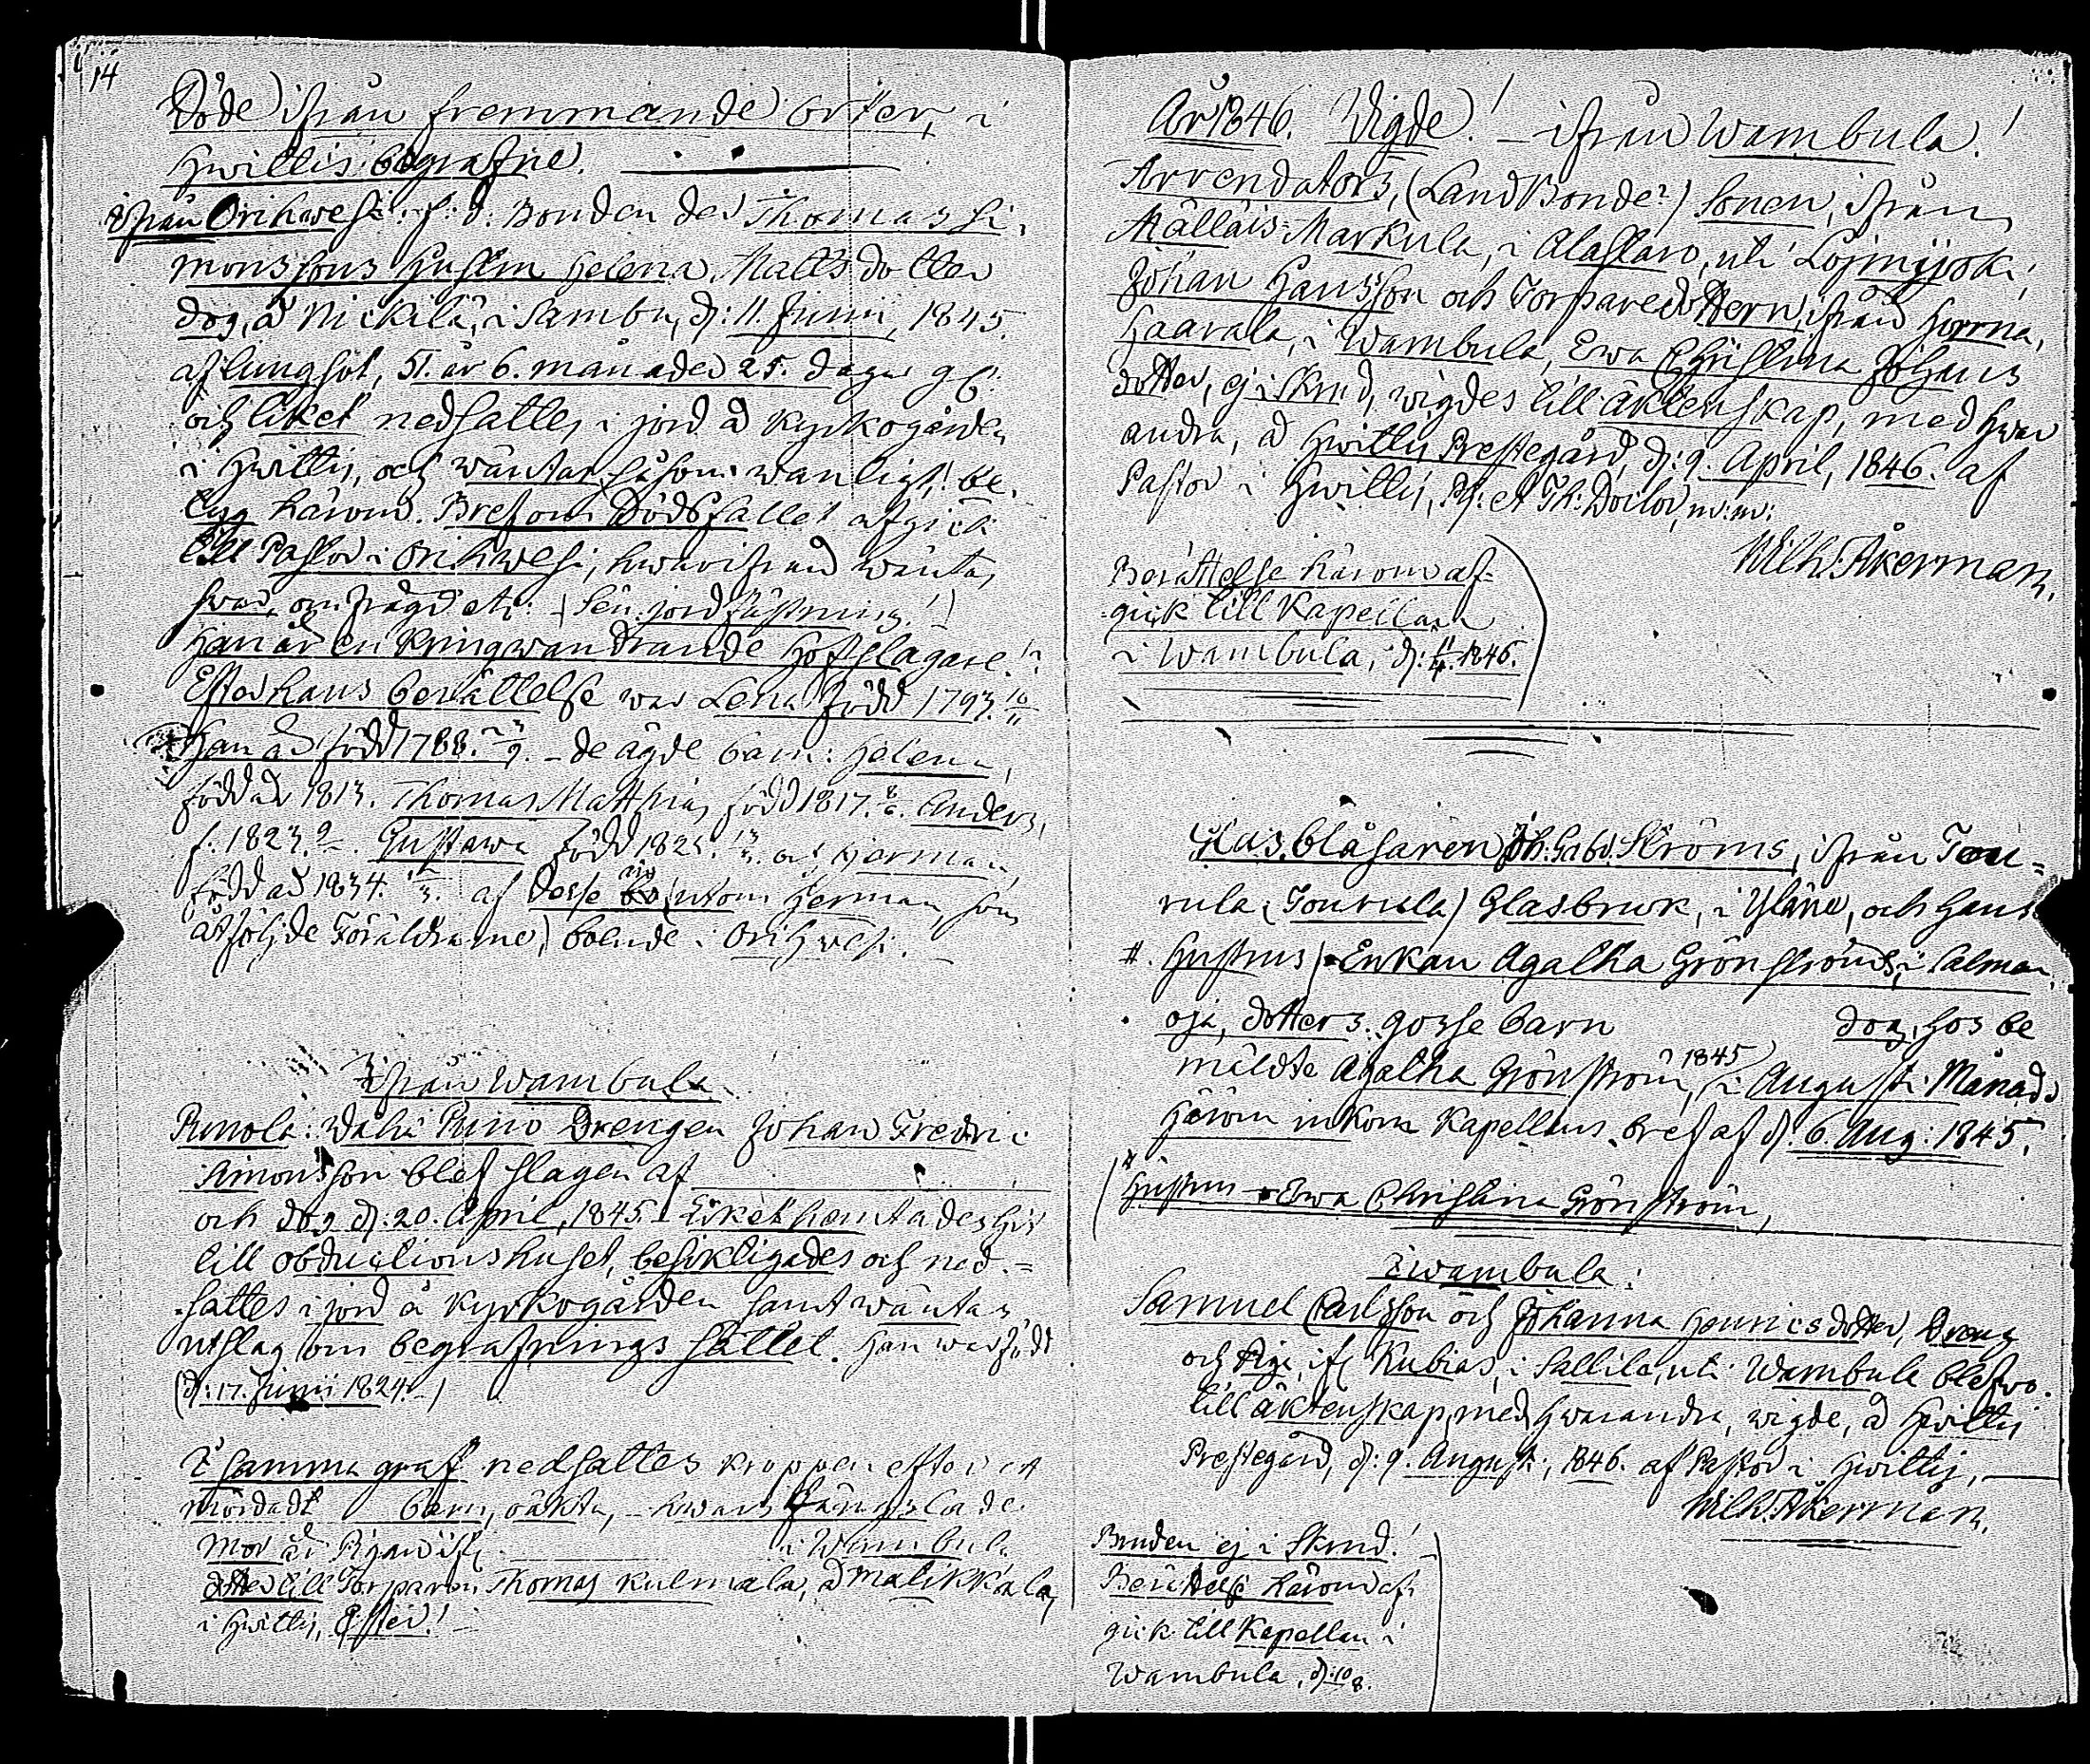 14
Döde ifrån fremmande orter, i
Hwittis begrafne.
Ifrån Orihwesi: f: d. Bonden der Thomas Si-
monssons hustru Helena Mattsdotter
dog, å Nickilä, i Sambu, d: 11. Junii, 1845.
af lungsot, 51. år 6. månader 25. dagar gl:
och liket nedsattes i jord å kyrkogården
i Hwittis, och wäntar, såsom wanligt! be-
tyg härom. Bref om Dödsfallet afgick
till Pastor i Orihwesi, hwarifrån wäntas
swar, om frägd etc: (Sen: jordfästning!)
Han är en kringwandrande Hofslagare!
Efter hans berättelse war Lena född 1793. 16/11
Han är född 1788. /9. – de ägde barn: Helena,
född år 1813. Thomas Matthias född 1817. Anders,
f. 1823. Gustawa född 1825. och Herman,
född år 1834. af desse utom Herman, som
åtföljde Föräldrarne) boende i Orihwesi.
Ifrån Wambula.
Punola: Wähä Puno Drengen Johan Fredric
Simonsson blef slagen af
och dog d: 20. April, 1845. – Liket hemtades hit
till obductionshuset, besiktigades och ned-
sattes i jord å kyrkogården samt wäntas
utslag om begrafnings sättet. Han war född
(d: 17. Junii 1824. –)
I samma graf nedsattes kroppen efter ett
mördadt barn, oäkta, – hwars fängslade
mor är Pigan ifr. i Wambula
dotter till Torparen Thomas Kulmala, å Matikkala,
i Hwittis,
År 1846. Vigde! – ifrån Wambula!
Arrendators, (Landbonde?) Sonen, ifrån
Mälläis-Markula, i Alastaro, uti Lojmijoki,
Johan Hansson och Torparedottern, ifrån Horrna,
Haarala, i Wambula, Ewa Christina Johans
dotter, ej i Skrud, wigdes till äktenskap, med hwar
andra, å Hwittis Prestegård, d: 9. April, 1846. af
Pastor i Hwittis, Ph: et Th: Doctor, m: m:
Wilh: Åkerman.
Berättelse härom af-
gick till Kapellan
i Wambula, d: 11/4. 1846.
Glas.blåsaren Joh. Gabr. Ströms, ifrån Tou-
rula (Jourula) Glasbruk, i Yläne, och hans
#. hustrus) Enkan Agatha Grönströms, i Salmen
oja, dotters. gosse barn dog, hos be
mäldte Agatha Grönström, 1845 i Augusti Månad.
Härom inkom Kapellans bref af d. 6. Aug: 1845.
(# Hustrus – Ewa Christina Grönström,
I Wambula:
Samuel Carlsson och Johanna Henricsdotter, Dreng
och Piga, ifr. Kubias, i Sallila, uti Wambula blefwo.
till äktenskap, med hwarandra, wigde, å Hwittis
Prestegård, d: 9. Augusti, 1846. af Pastor i Hwittis,
Wilh: Åkerman.
Bruden ej i Skrud!
Berättelse härom af-
gick till Kapellan i
Wambula, d: 10/8.